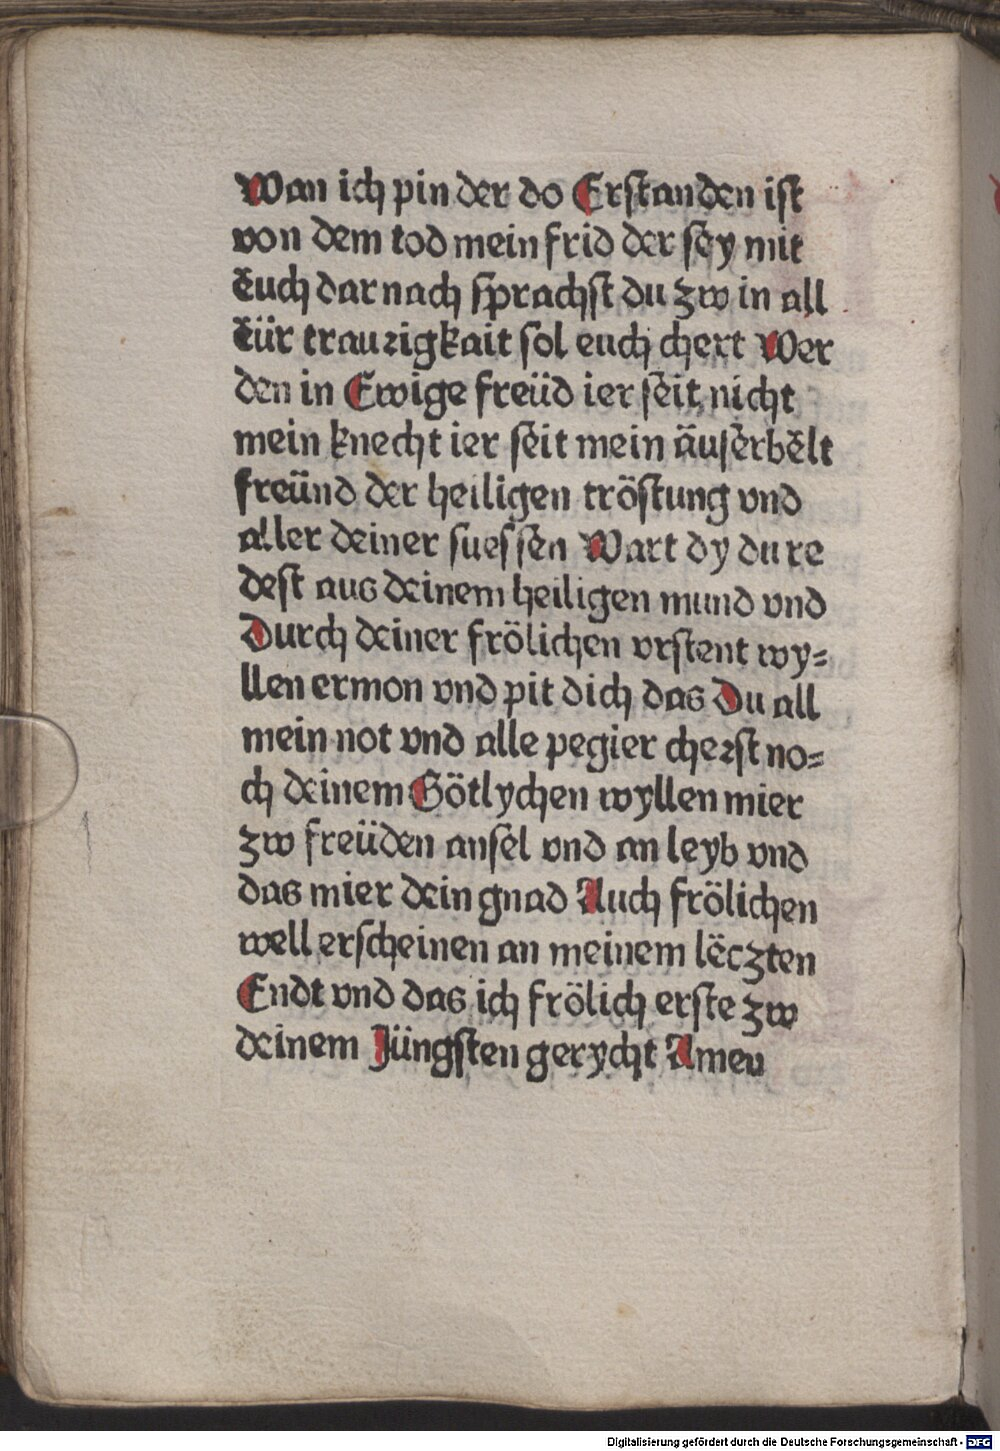 Wan ich pin der do Erstanden ist
von dem tod mein frid der sey mit
Ëuch dar nach sprachst du zw in all
Ëür traurigkait sol euch chert Wer
den in Ewige freüd ier sëit nicht
mein knecht ier sëit mein äusërbëlt
freünd der heiligen tröstung vnd
aller deiner suessen Wart dy du re
dest aus deinem heiligen mund vnd
Durch deiner frölichen vrstent wy=
llen ermon vnd pit dich das Du all
mein not vnd alle pegier cherst no=
ch deinem Götlychen wyllen mier
zw freüden an sel vnd an leyb vnd
das mier dein gnad Auch frölichen
well erscheinen an meinem lëczten
Endt vnd das ich frölich erste zw
deinem Jüngsten gerycht Amen
1
Digitalisierung gefördert durch die Deutsche Forschungsgemeinschaft - DFG